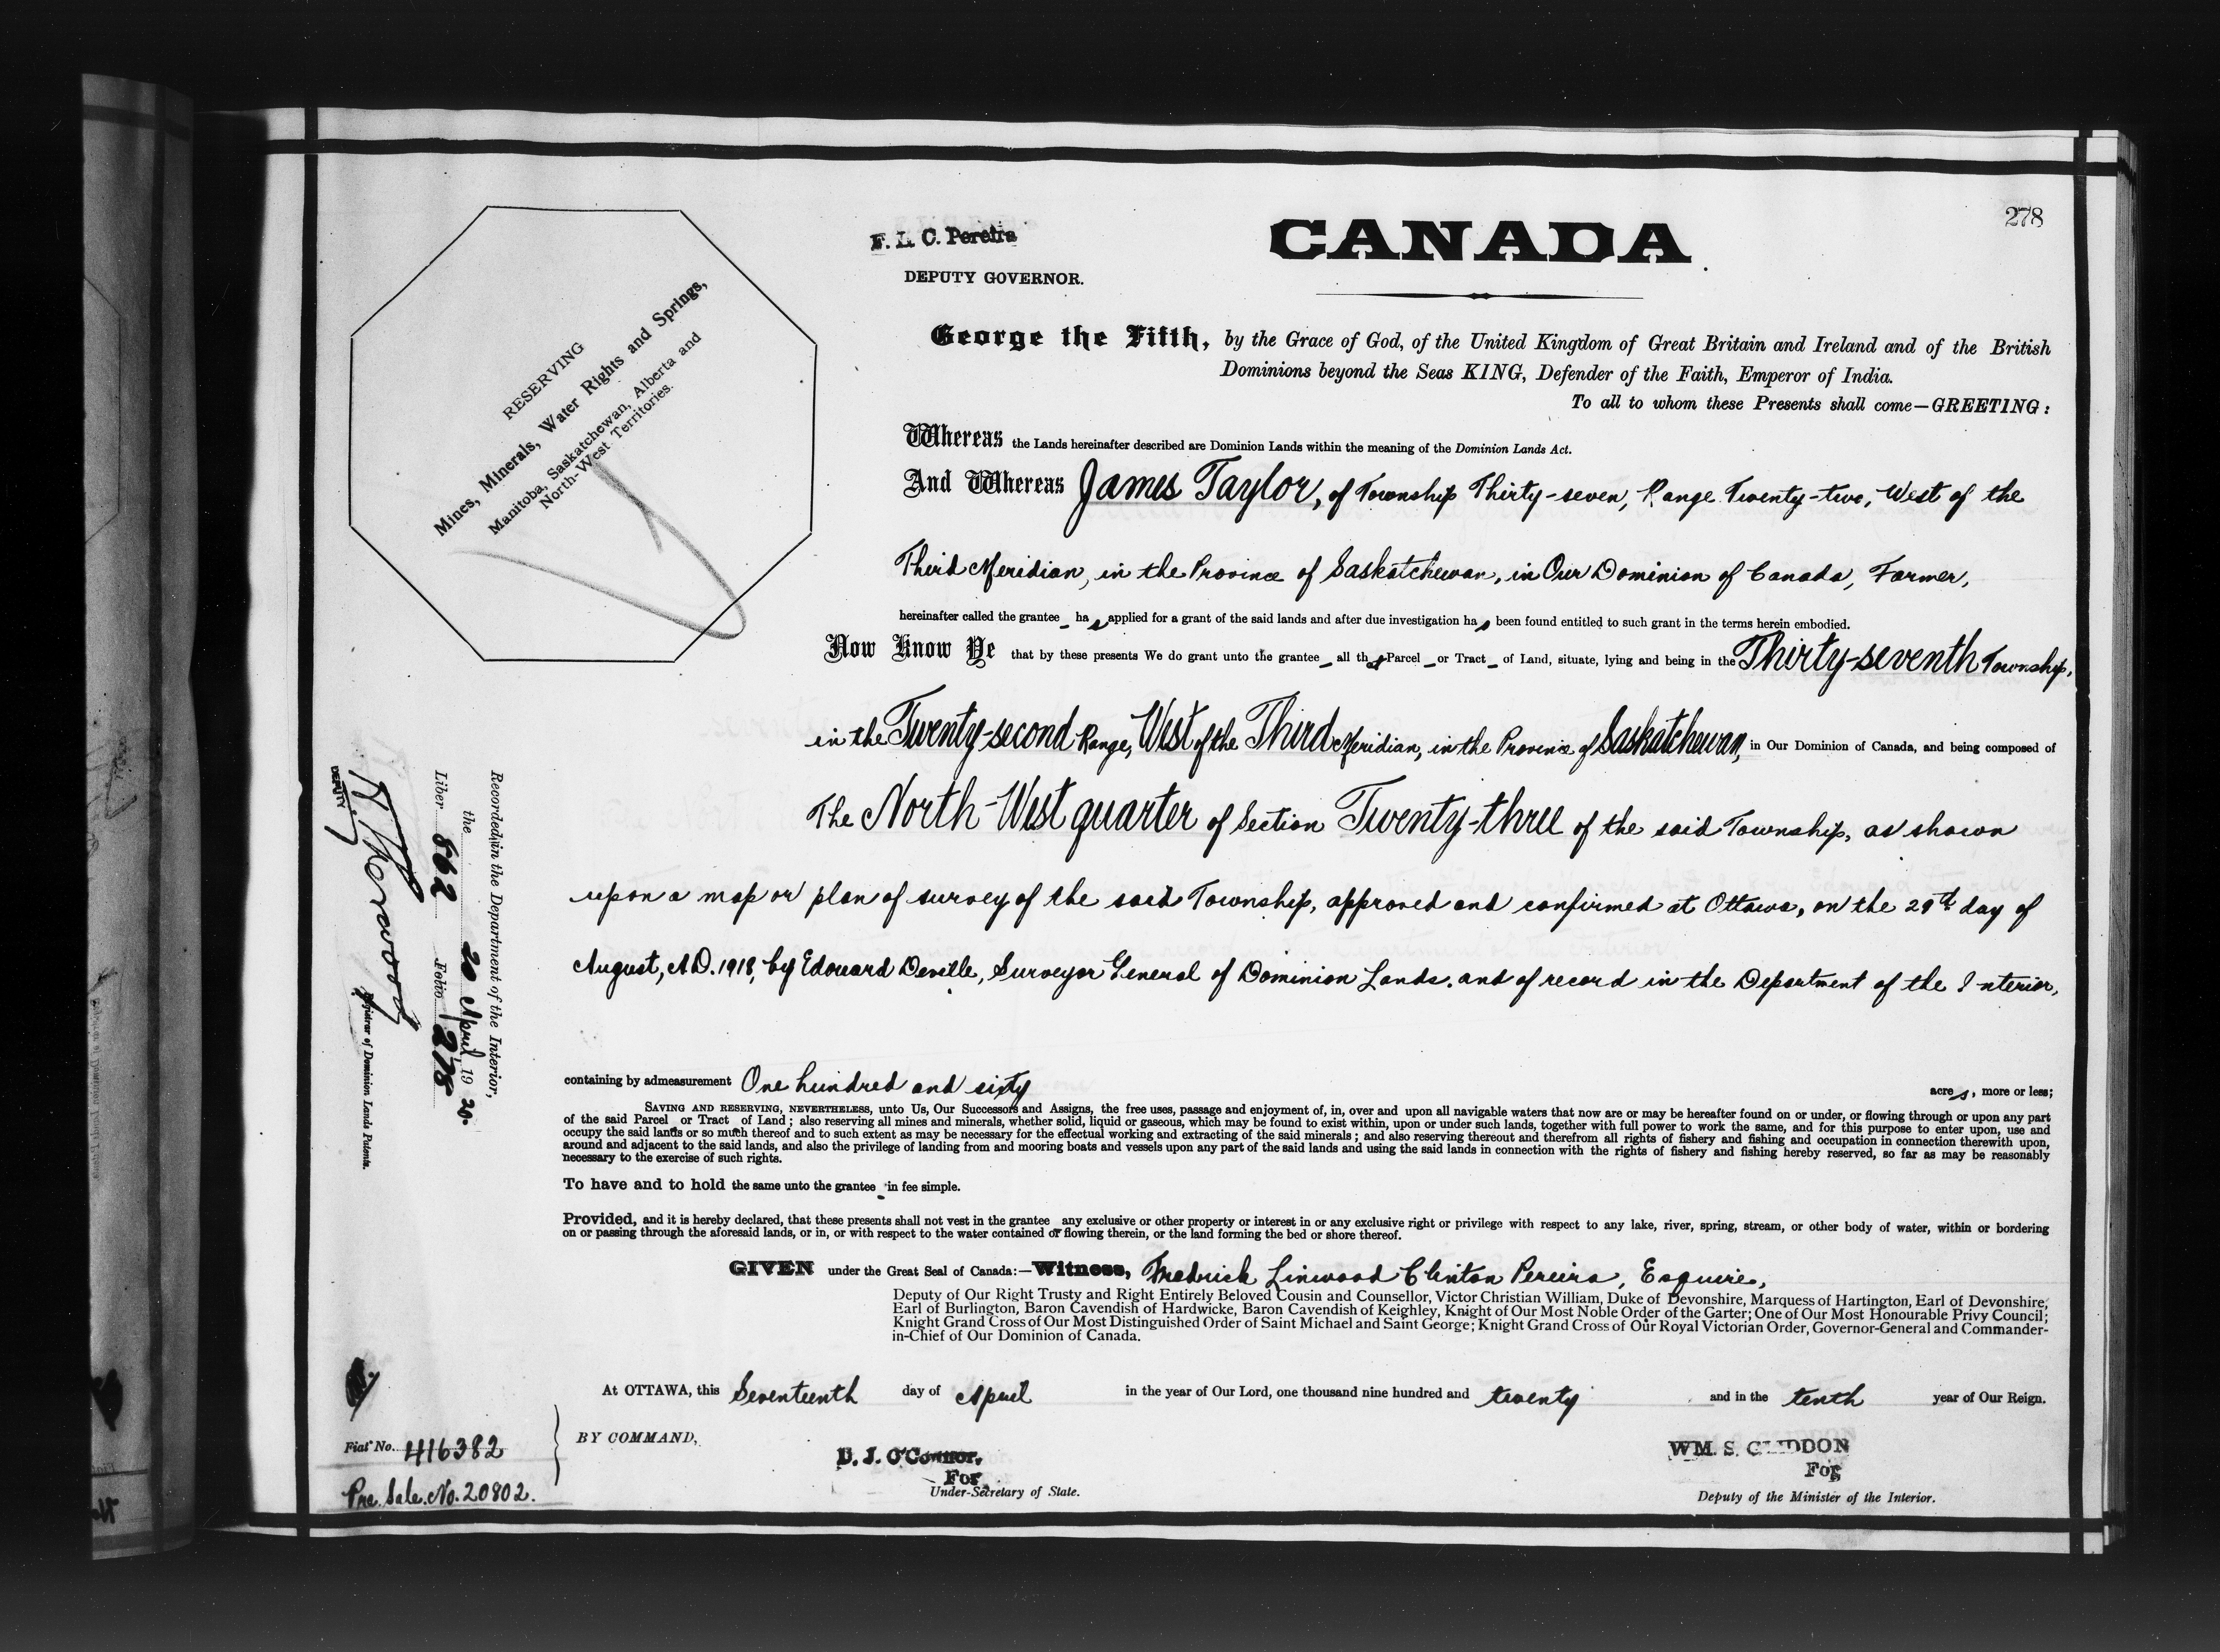 278
F. L. C. Pereira
DEPUTY GOVERNOR.
CANADA
RESERVING
Mines, Minerals, Water Rights and Springs,
Manitoba, Saskatchewan, Alberta and
North-West Territories.
George the Fifth, by the Grace of God, of the United Kingdom of Great Britain and Ireland and of the British
Dominions beyond the Seas KING, Defender of the Faith, Emperor of India.
To all to whom these Presents shall come—GREETING:
Whereas the Lands hereinafter described are Dominion Lands within the meaning of the Dominion Lands Act.
And Whereas James Taylor, of Township Thirty-seven, Range Twenty-two, West of the
Third Meridian, in the Province of Saskatchewan, in Our Dominion of Canada, Farmer,
hereinafter called the grantee_ has applied for a grant of the said lands and after due investigation has been found entitled to such grant in the terms herein embodied.
Now Know Ye that by these presents We do grant unto the grantee_ all that Parcel_ or Tract_ of Land, situate, lying and being in the Thirty-seventh Township,
in the Twenty-second Range, West of the Third Meridian, in the Province of Saskatchewan, in Our Dominion of Canada, and being composed of
The North-West quarter of Section Twenty-three of the said Township, as shown
upon a map or plan of survey of the said Township, approved and confirmed at Ottawa, on the 29th day of
August, A.D. 1918, by Edouard Deville, Surveyor General of Dominion Lands, and of record in the Department of the Interior,
containing by admeasurement One hundred and sixty acres, more or less;
SAVING AND RESERVING, NEVERTHELESS, unto Us, Our Successors and Assigns, the free uses, passage and enjoyment of, in, over and upon all navigable waters that now are or may be hereafter found on or under, or flowing through or upon any part
of the said Parcel or Tract of Land; also reserving all mines and minerals, whether solid, liquid or gaseous, which may be found to exist within, upon or under such lands, together with full power to work the same, and for this purpose to enter upon, use and
occupy the said lands or so much thereof and to such extent as may be necessary for the effectual working and extracting of the said minerals; and also reserving thereout and therefrom all rights of fishery and fishing and occupation in connection therewith upon,
around and adjacent to the said lands, and also the privilege of landing from and mooring boats and vessels upon any part of the said lands and using the said lands in connection with the rights of fishery and fishing hereby reserved, so far as may be reasonably
necessary to the exercise of such rights.
To have and to hold the same unto the grantee_ in fee simple.
Provided, and it is hereby declared, that these presents shall not vest in the grantee any exclusive or other property or interest in or any exclusive right or privilege with respect to any lake, river, spring, stream, or other body of water, within or bordering
on or passing through the aforesaid lands, or in, or with respect to the water contained or flowing therein, or the land forming the bed or shore thereof.
GIVEN under the Great Seal of Canada:—Witness, Fredrick Linwood Clinton Pereira, Esquire,
Deputy of Our Right Trusty and Right Entirely Beloved Cousin and Counsellor, Victor Christian William, Duke of Devonshire, Marquess of Hartington, Earl of Devonshire,
Earl of Burlington, Baron Cavendish of Hardwicke, Baron Cavendish of Keighley, Knight of Our Most Noble Order of the Garter; One of Our Most Honourable Privy Council;
Knight Grand Cross of Our Most Distinguished Order of Saint Michael and Saint George; Knight Grand Cross of Our Royal Victorian Order, Governor-General and Commander-
in-Chief of Our Dominion of Canada.
At OTTAWA, this Seventeenth day of April in the year of Our Lord, one thousand nine hundred and twenty and in the tenth year of Our Reign.
BY COMMAND,
D. J. O'Connor,
For
Under-Secretary of State.
WM. S. GLIDDON
For
Deputy of the Minister of the Interior.
Recorded in the Department of the Interior,
the 20 April 1920.
Liber 562 Folio 278
DEPUTY
Registrar of Dominion Lands Patents.
Fiat No. 416382
Pre. Sale. No. 20802.